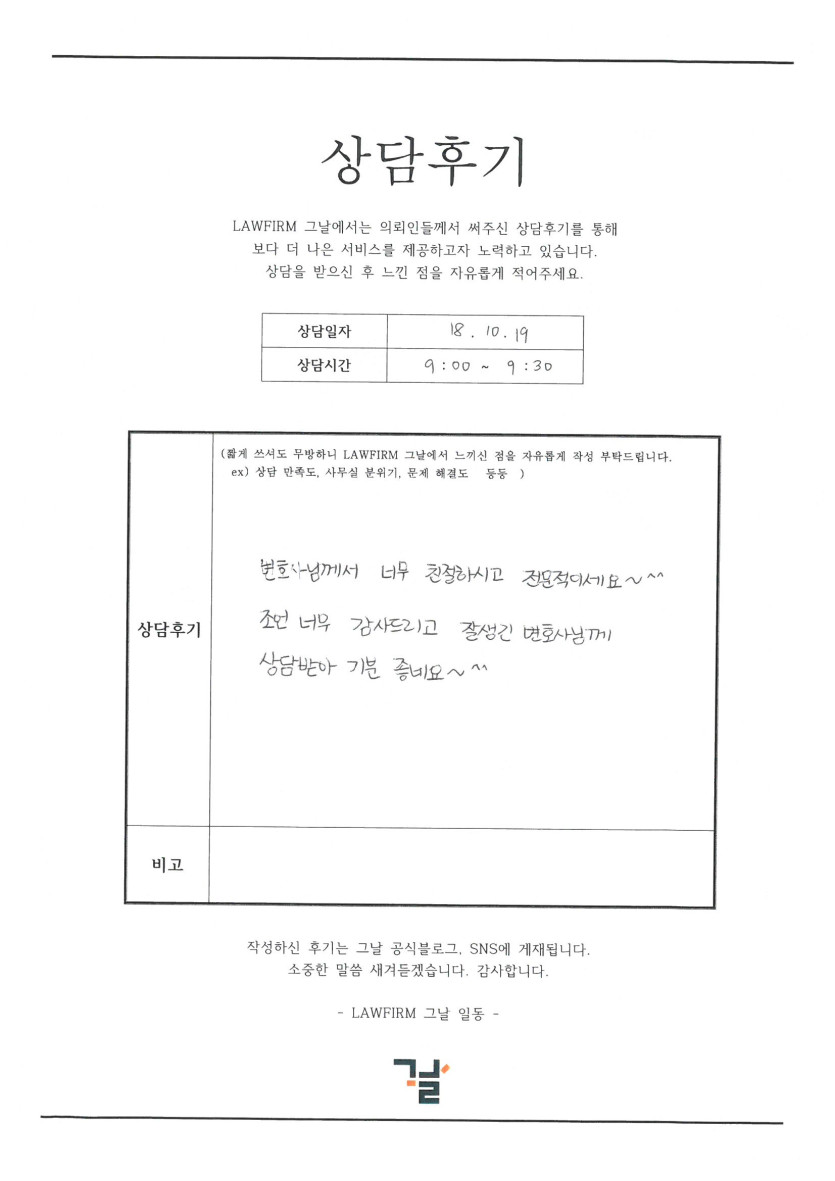 상담후기
LAWFIRM 그날에서는 의뢰인들께서 써주신 상담후기를 통해
보다 더 나은 서비스를 제공하고자 노력하고 있습니다.
상담을 받으신 후 느낀 점을 자유롭게 적어주세요.
상담일자 18. 10. 19
상담시간 9:00 ~ 9:30
(짧게 쓰셔도 무방하니 LAWFIRM 그날에서 느끼신 점을 자유롭게 작성 부탁드립니다.
ex) 상담 만족도, 사무실 분위기, 문제 해결도 등등 )
상담후기
변호사님께서 너무 친절하시고 전문적이세요~^^
조언 너무 감사드리고 잘생긴 변호사님께
상담받아 기분 좋네요~^^
비고
작성하신 후기는 그날 공식블로그, SNS에 게재됩니다.
소중한 말씀 새겨듣겠습니다. 감사합니다.
- LAWFIRM 그날 일동 -
그날